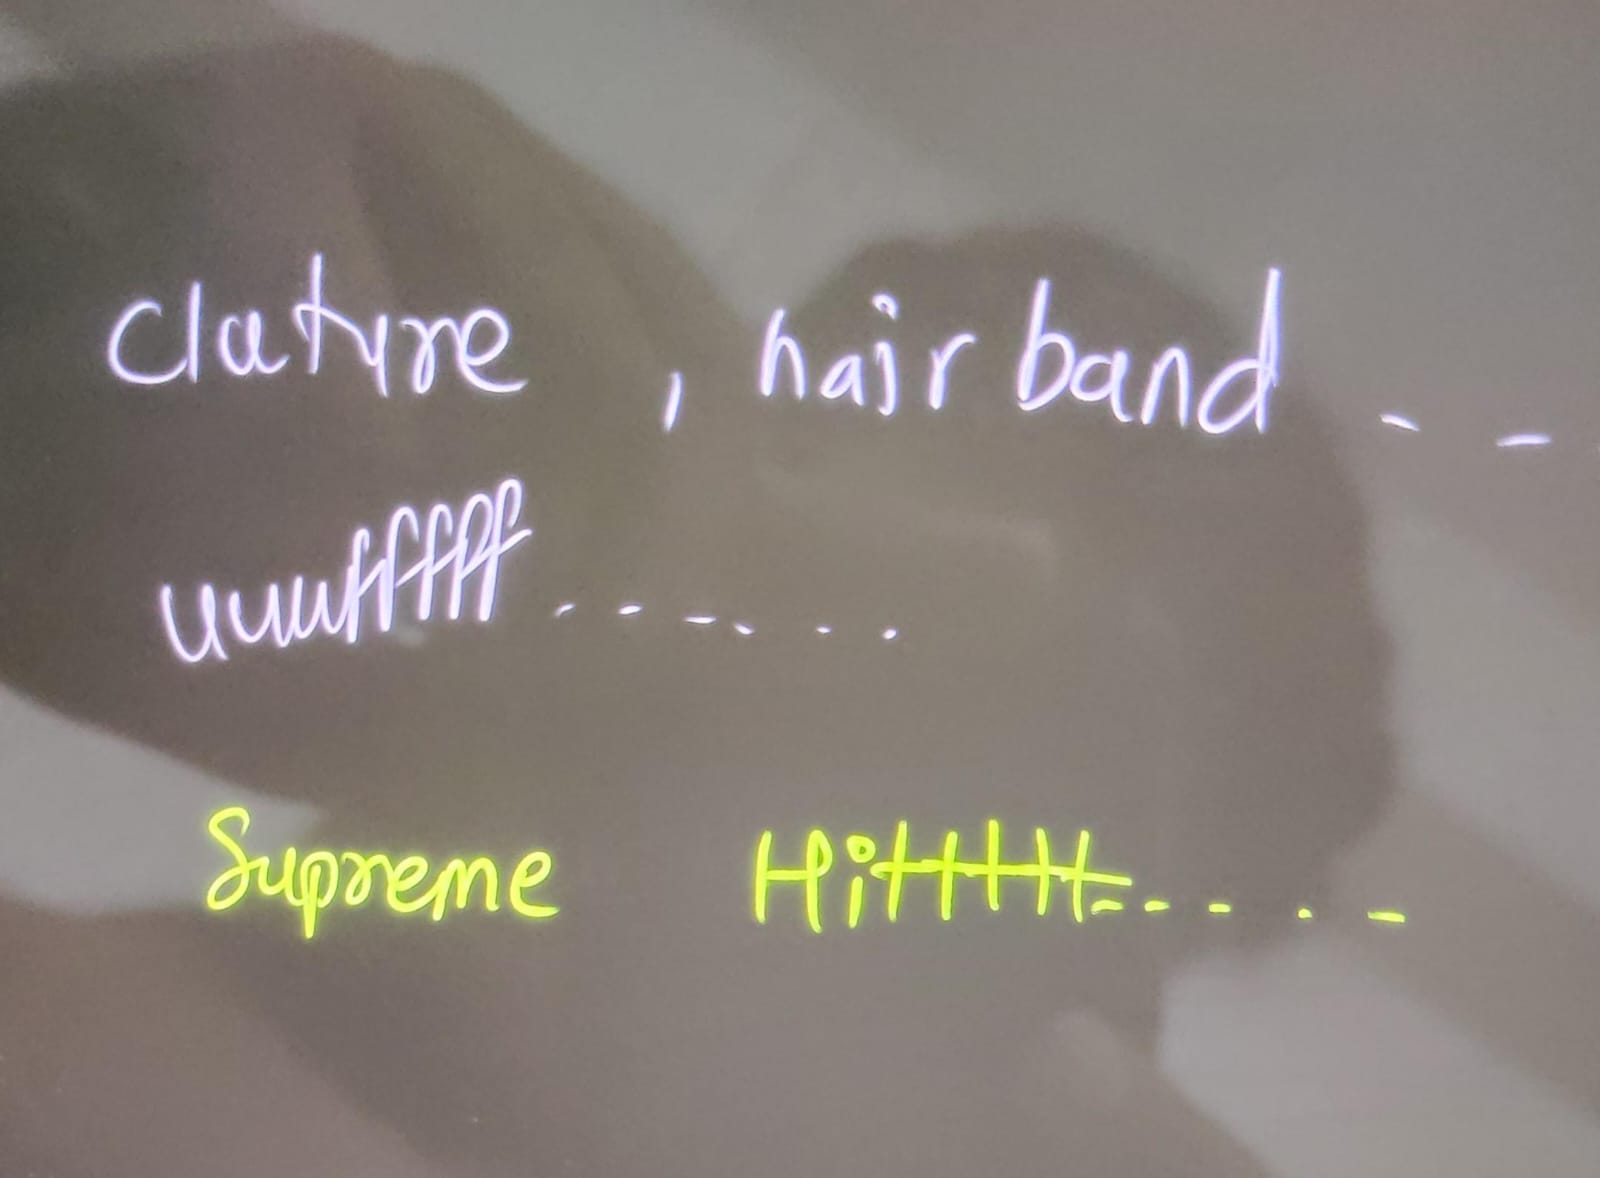 clature , hair band - -
uuuuffffff . . . . . . .
Supreme Hitttttt . . . . .